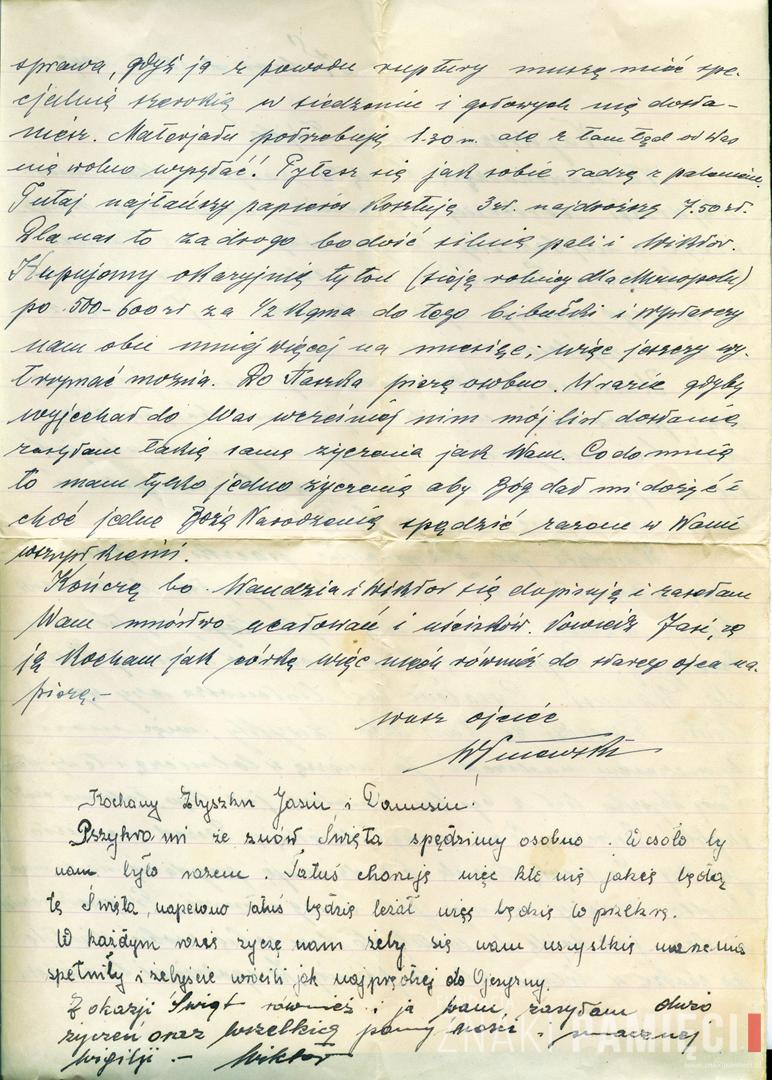 sprawa, gdyż ja z powodu ruptury muszę mieć spe-
cjalnię szerokię w siedzeniu i gotowych nię dosta-
niesz. Materjału potrzebuję 1.30 m. ale z tamtąd od Was
nię wolno wysyłać! Pytasz się jak sobie radzę z paleniem.
Tutaj najtańszy papieros kosztuję 3 zł. najdroższy 7.50 zł.
Dla nas to za drogo bo dość silnię pali i Wiktor.
Kupujemy okazyjnię tytoń (sieją rolnicy dla Monopolu)
po 500-600 zł za 1/2 kgma do tego bibułki i wystarczy
nam obu mniej więcej na miesiąc; więc jeszczy wy-
trzymać można. Do Staszka piszę osobno. W razie gdyby
wyjechał do Was wcześniej nim mój list dostanię
zasyłam takię samę życzenia jak Wam. Co do mnię
to mam tylko jedno życzenię aby Bóg dał mi dożyć i
choć jedne Bożę Narodzenię spędzić razem z Wami
wszystkiemi.
Kończę bo Wandzia i Wiktor się dopisują i zasełam
Wam mnóstwo ucałowań i uścisków. Powiedz Jasi, żę
ję kocham jak córkę więc niech również do starego ojca na-
piszę.-
wasz ojciec
Kochany Zbyszku Jasiu i Danusiu!
Pszykro mi że znów Święta spędzimy osobno. Wesoło by
nam było razem. Tatuś choruję więc kto wię jakię będą
tę Święta, napewno tatuś będzię leżał więc będzię
W każdym razię życzę wam żeby się wam wszystkię marzenia
spełniły i żebyście wrócili jak najprędzej do Ojczyzny.
Z okazji Świąt również i ja wam zasyłam dużo
życzeń oraz wszelkię pomyślności - smacznej
wigilji. - Wiktor
ZNAKI PAMIĘCI